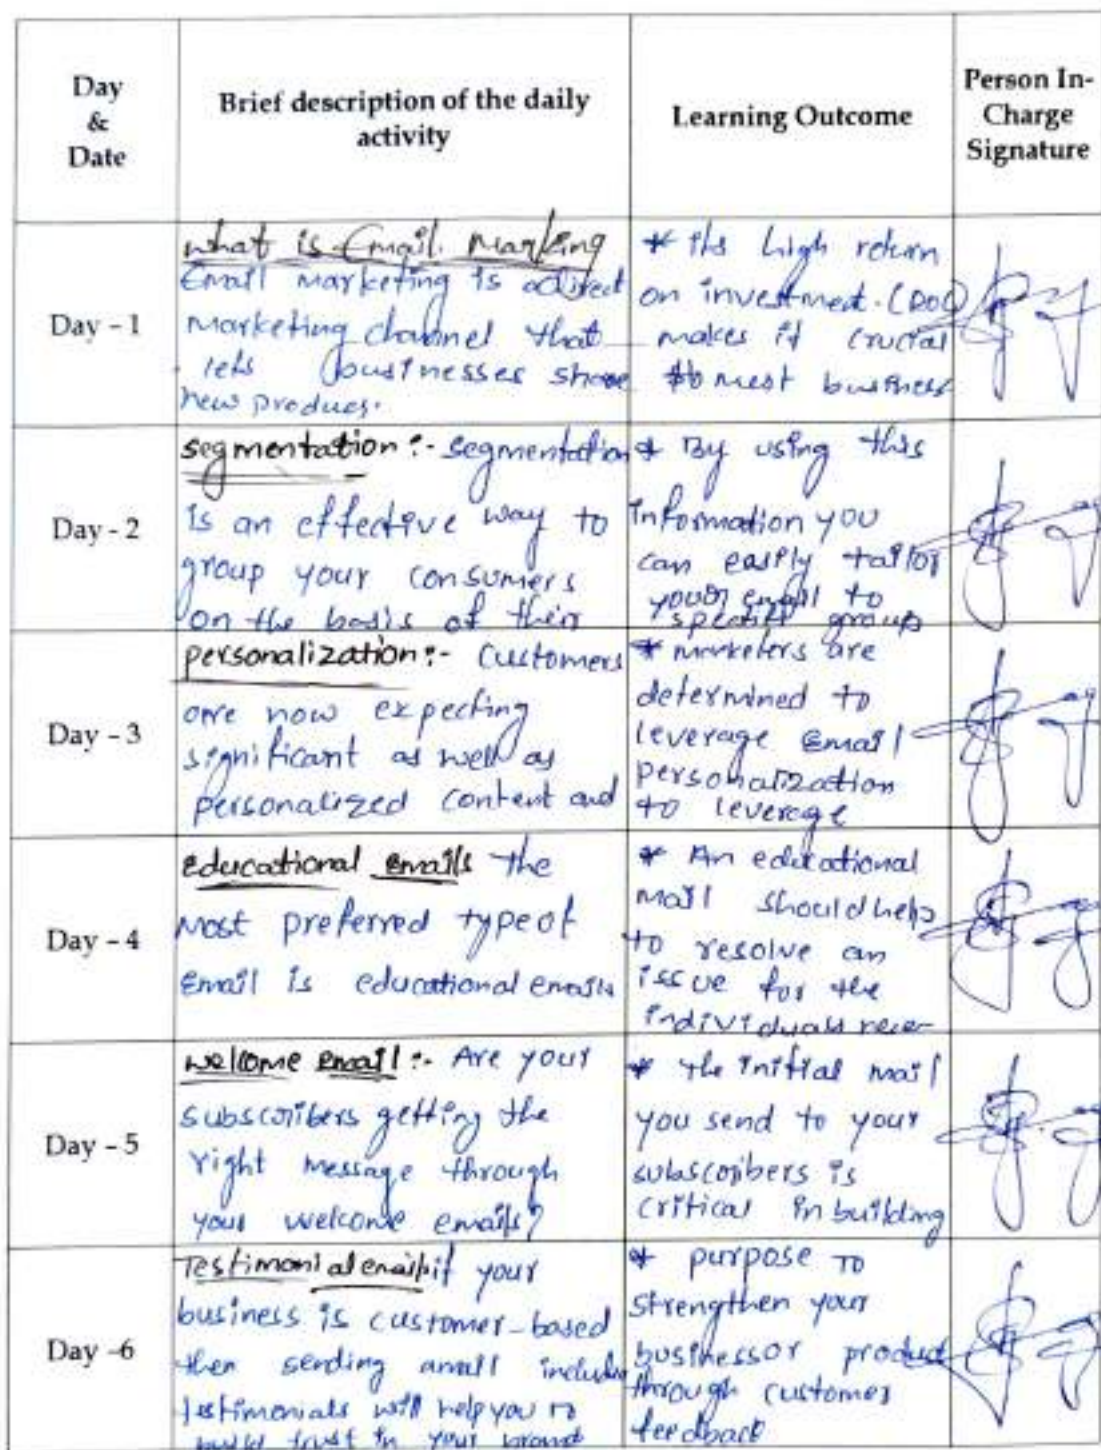 Day
&
Date
Brief description of the daily
activity
Learning Outcome
Person In-
Charge
Signature
Day - 1
what is Email. Marking
Email marketing is a direct
marketing channel that
lets businesses share
new produces.
* its high return
on investment. (ROI)
makes it crucial
to most business
Day - 2
segmentation :- segmentation
is an effective way to
group your consumers
on the basis of their
* By using this
information you
can easily tailor
your email to
specific group
Day - 3
personalization :- Customers
are now expecting
significant as well as
personalized content and
* marketers are
determined to
leverage Email
personalization
to leverage
Day - 4
Educational emails the
most preferred type of
email is educational emails
* An educational
mail should help
to resolve an
issue for the
individuals recer-
Day - 5
welcome email :- Are your
subscribers getting the
right message through
your welcome emails?
* the initial mail
you send to your
subscribers is
critical in building
Day -6
Testimonial email if your
business is customer-based
then sending include
testimonials will help you to
build trust in your brand
* purpose to
strengthen your
business or product
through customer
feedback